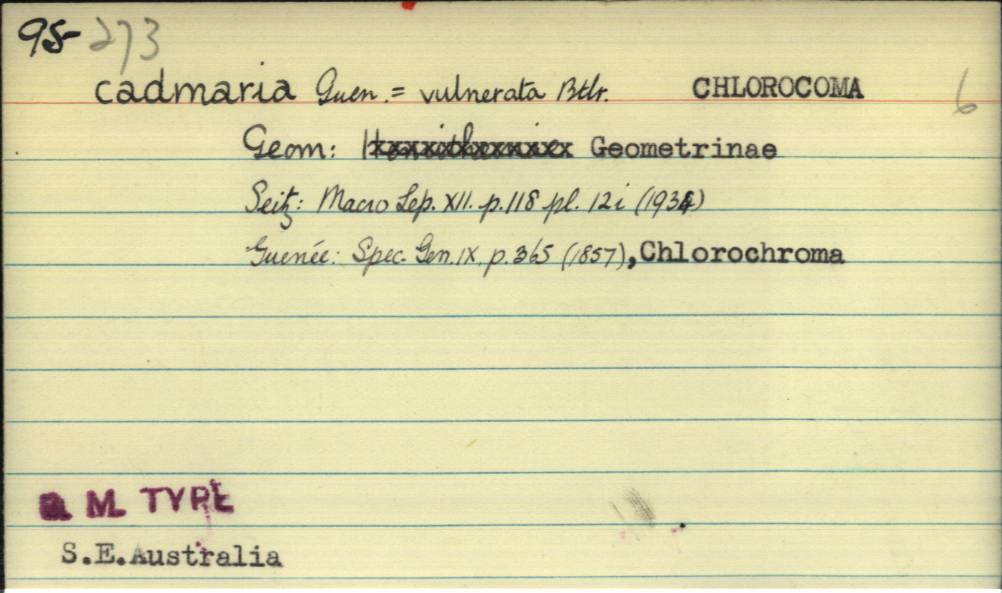 95-273
cadmaria Guen. = vulnerata Btlr. CHLOROCOMA 6
Geom: Geometrinae
Seitz: Macro Lep. XII. p.118 pl. 12i (1934)
Guenée: Spec. Gen. IX, p.365 (1857), Chlorochroma
B. M. TYPE
S.E.Australia